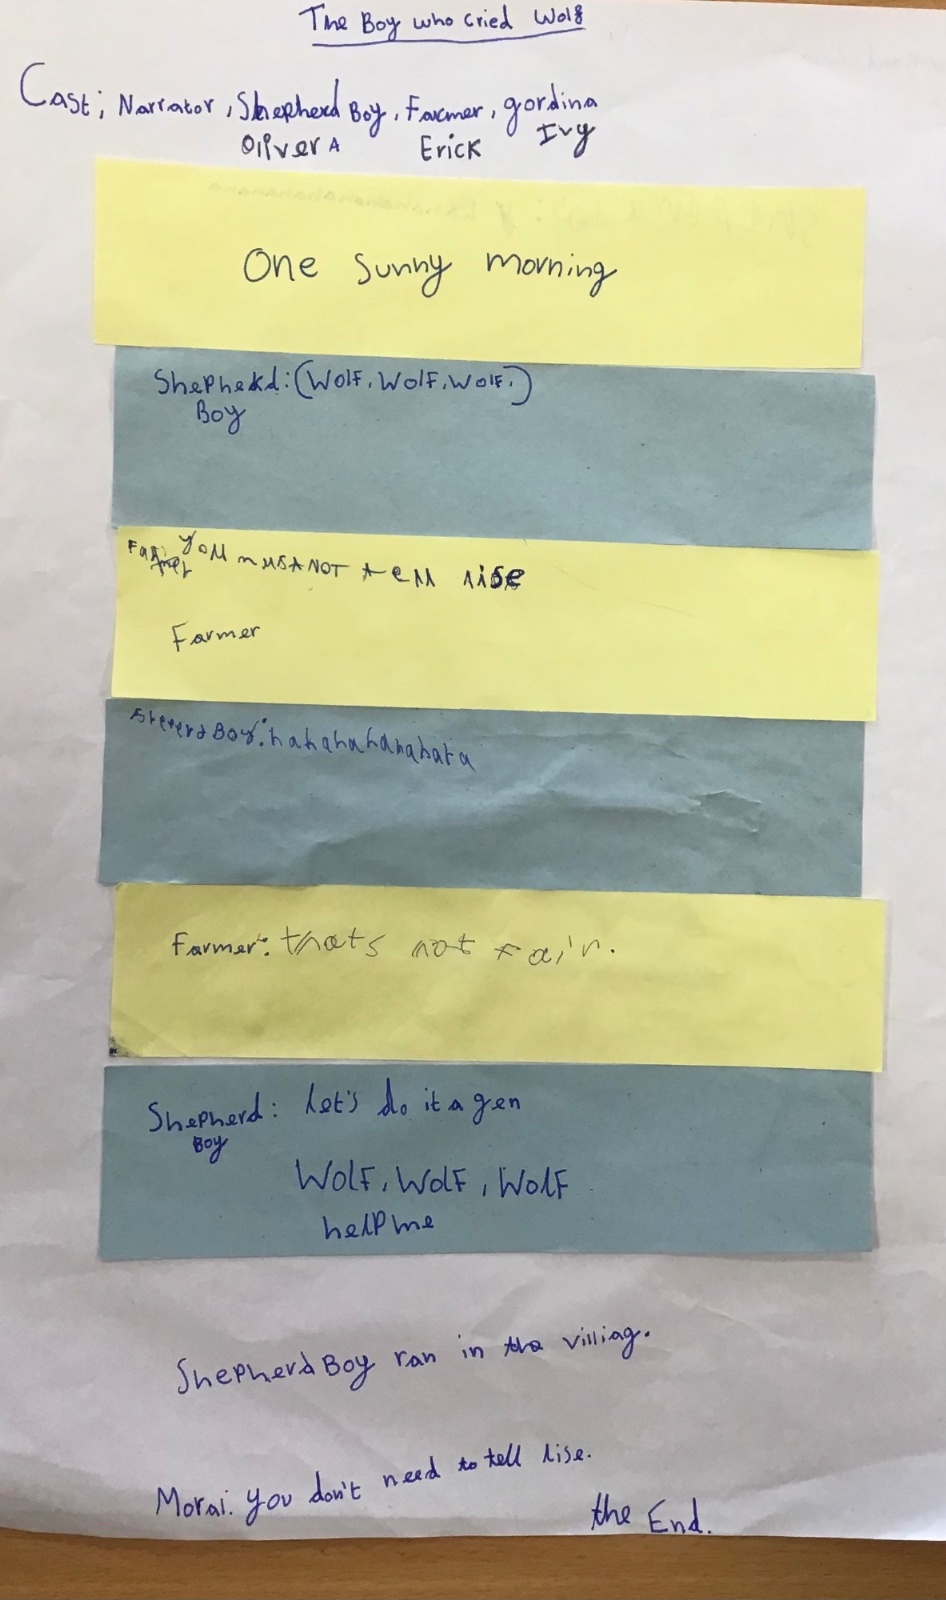 The Boy who cried Wolf
Cast; Narrator, Shepherd Boy, Farmer, gordina
Oliver A Erick Ivy
One sunny morning
Shepherd: (Wolf. Wolf. Wolf.)
Boy
Farmer you must NOT tell lise
Farmer
Sheperd Boy: hahahahahahaha
Farmer: thats not fair.
Shepherd: let's do it a gen
Boy
Wolf, Wolf, Wolf
help me
Shepherd Boy ran in the villiag.
Moral. you don't need to tell lise.
the End.